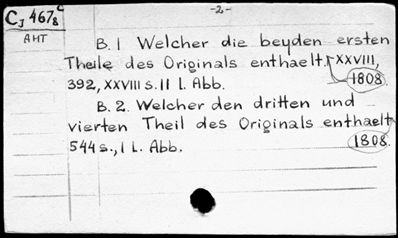 Cј 467⁸c
-2-
AHT
B. I Welcher die beyden ersten
Theile des Originals enthaelt, XXVIII,
1808.
392, XXVIII S. II l. Abb.
B. 2. Welcher den dritten und
vierten Theil des Originals enthaelt
1808.
544 s., I L. Abb.